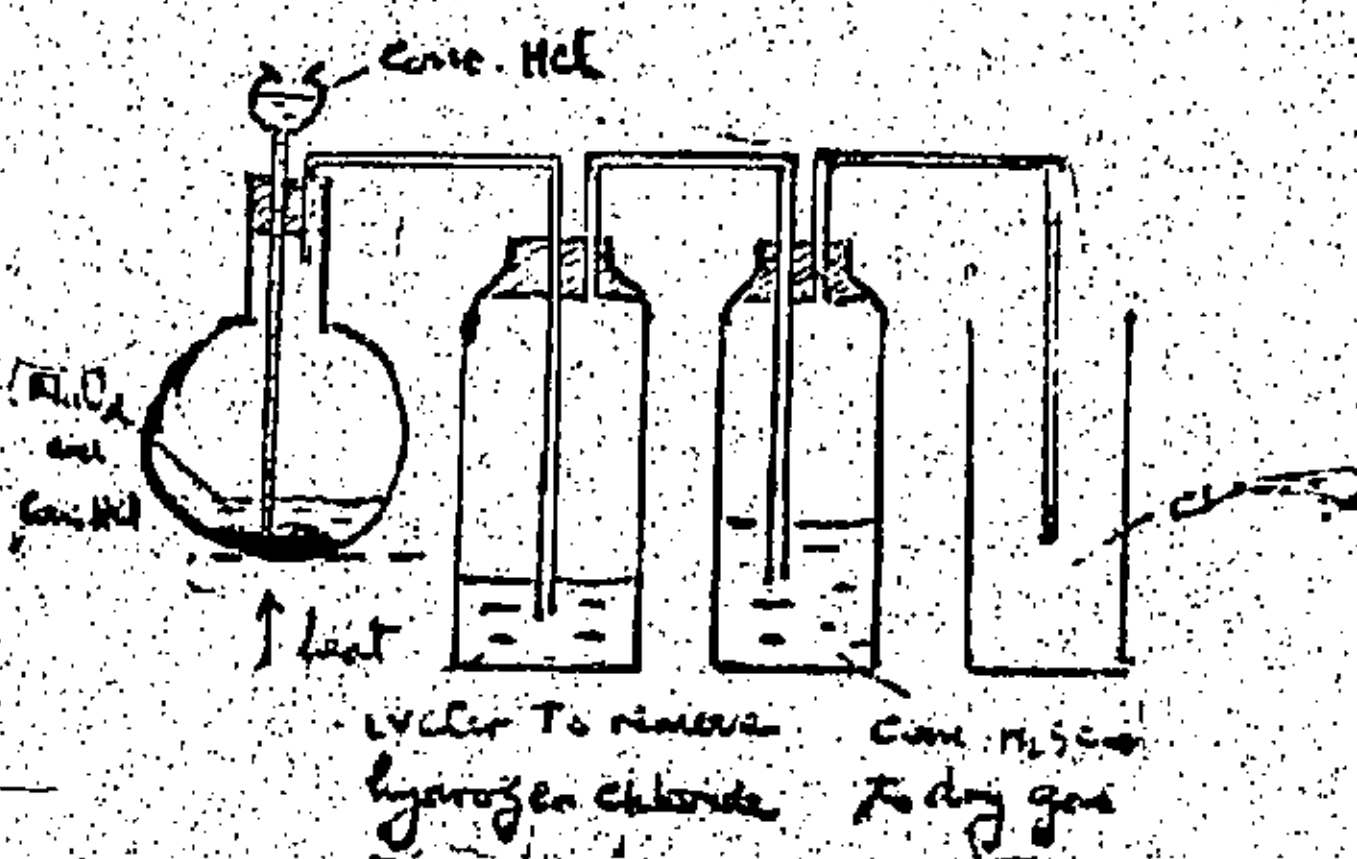 Conc. HCl
and
Conc. HCl
heat
Water To remove
hydrogen chloride
Conc. H₂SO₄
To dry gas
Cl